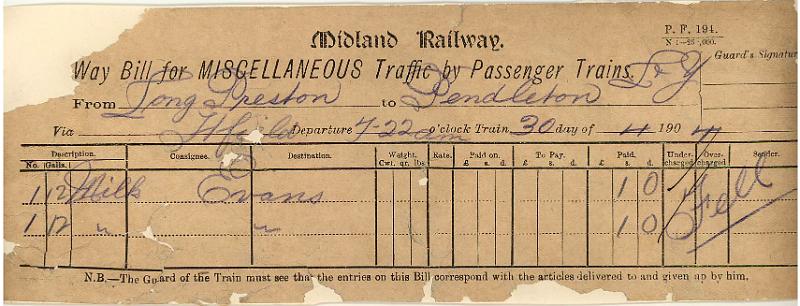 Midland Railway.
P. F. 194.
Way Bill for MISCELLANEOUS Traffic by Passenger Trains.
Guard's Signatur
From Long Preston to Pendleton L & Y
Via Hfield Departure 7-22 am o'clock Train, 30 day of 4 190 4
Description. Consignee. Destination. Weight. Rate. Paid on. To Pay. Paid. Under-charged Over-charged Sender.
No. Galls. Cwt. qr. lbs £ s. d. £ s. d. £ s. d.
1 12 Milk Evans 1 0 Fell
1 12 " " 1 0
N.B.—The Guard of the Train must see that the entries on this Bill correspond with the articles delivered to and given up by him.